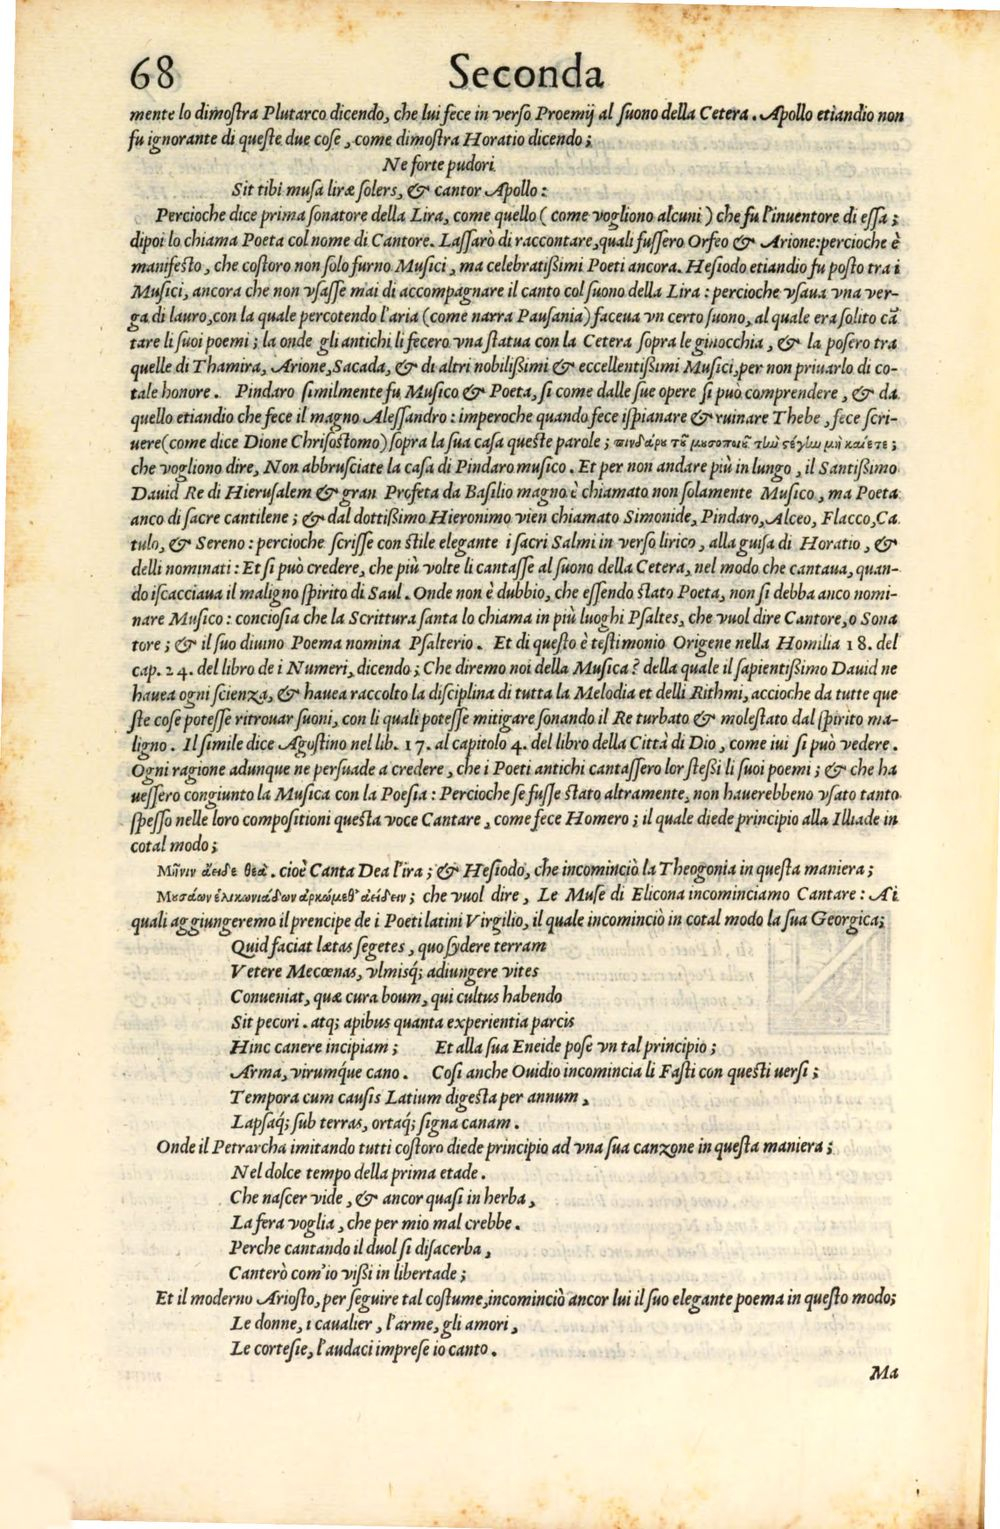 68 Seconda
mente lo dimoſtra Plutarco dicendo, che lui fece in verſo Proemij al ſuono della Cetera. Apollo etiandio non
fu ignorante di queſte due coſe, come dimoſtra Horatio dicendo;
Ne forte pudori
Sit tibi muſa liræ ſolers, & cantor Apollo:
Percioche dice prima ſonatore della Lira, come quello (come vogliono alcuni) che fu l'inuentore di eſſa;
dipoi lo chiama Poeta col nome di Cantore. Laſſarò di raccontare, quali fuſſero Orfeo & Arione: percioche è
manifeſto, che coſtoro non ſolo furno Muſici, ma celebratißimi Poeti ancora. Heſiodo etiandio fu poſto tra i
Muſici, ancora che non vſaſſe mai di accompagnare il canto col ſuono della Lira: percioche vſaua vna ver-
ga di lauro, con la quale percotendo l'aria (come narra Pauſania) faceua vn certo ſuono, al quale era ſolito cā
tare li ſuoi poemi; la onde gli antichi li fecero vna ſtatua con la Cetera ſopra le ginocchia, & la poſero tra
quelle di Thamira, Arione, Sacada, & di altri nobilißimi & eccellentißimi Muſici, per non priuarlo di co-
tale honore. Pindaro ſimilmente fu Muſico & Poeta, ſi come dalle ſue opere ſi può comprendere, & da
quello etiandio che fece il magno Aleſſandro: imperoche quando fece iſpianare & ruinare Thebe, fece ſcri-
uere (come dice Dione Chriſoſtomo) ſopra la ſua caſa queſte parole; πινδάρȣ τȣ͂ μȣσοποιȣ͂ τὴν ςέγην μὴ καίετε;
che vogliono dire, Non abbruſciate la caſa di Pindaro muſico. Et per non andare più in lungo, il Santißimo
Dauid Re di Hieruſalem & gran Profeta da Baſilio magno è chiamato non ſolamente Muſico, ma Poeta
anco di ſacre cantilene; & dal dottißimo Hieronimo vien chiamato Simonide, Pindaro, Alceo, Flacco, Ca
tulo, & Sereno: percioche ſcriſſe con ſtile elegante i ſacri Salmi in verſo lirico, alla guiſa di Horatio, &
delli nominati: Et ſi può credere, che più volte li cantaſſe al ſuono della Cetera, nel modo che cantaua, quan-
do iſcacciaua il maligno ſpirito di Saul. Onde non è dubbio, che eſſendo ſtato Poeta, non ſi debba anco nomi-
nare Muſico: concioſia che la Scrittura ſanta lo chiama in più luoghi Pſaltes, che vuol dire Cantore, o Sona
tore; & il ſuo diuino Poema nomina Pſalterio. Et di queſto è teſtimonio Origene nella Homilia 18. del
cap. 24. del libro de i Numeri, dicendo; Che diremo noi della Muſica? della quale il ſapientißimo Dauid ne
hauea ogni ſcienza, & hauea raccolto la diſciplina di tutta la Melodia et delli Rithmi, accioche da tutte que
ſte coſe poteſſe ritrouar ſuoni, con li quali poteſſe mitigare ſonando il Re turbato & moleſtato dal ſpirito ma-
ligno. Il ſimile dice Agoſtino nel lib. 17. al capitolo 4. del libro della Città di Dio, come iui ſi può vedere.
Ogni ragione adunque ne perſuade a credere, che i Poeti antichi cantaſſero lor ſteßi li ſuoi poemi; & che ha
ueſſero congiunto la Muſica con la Poeſia: Percioche ſe fuſſe ſtato altramente, non hauerebbeno vſato tanto
ſpeſſo nelle loro compoſitioni queſta voce Cantare, come fece Homero; il quale diede principio alla Illiade in
cotal modo;
Μῆνιν ἄειδε θεά. cioè Canta Dea l'ira; & Heſiodo, che incominciò la Theogonia in queſta maniera;
Μȣσάων ἑλικωνιάδων ἀρκώμεθ' ἀείδειν; che vuol dire, Le Muſe di Elicona incominciamo Cantare: Ai
quali aggiungeremo il prencipe de i Poeti latini Virgilio, il quale incominciò in cotal modo la ſua Georgica;
Quid faciat lætas ſegetes, quo ſydere terram
Vetere Mecœnas, vlmiſq; adiungere vites
Conueniat, quæ cura boum, qui cultus habendo
Sit pecori. atq; apibus quanta experientia parcis
Hinc canere incipiam; Et alla ſua Eneide poſe vn tal principio;
Arma, virumq́ue cano. Coſi anche Ouidio incomincia li Faſti con queſti uerſi;
Tempora cum cauſis Latium digeſta per annum,
Lapſaq́; ſub terras, ortaq́; ſigna canam.
Onde il Petrarcha imitando tutti coſtoro diede principio ad vna ſua canzone in queſta maniera;
Nel dolce tempo della prima etade.
Che naſcer vide, & ancor quaſi in herba,
La fera voglia, che per mio mal crebbe.
Perche cantando il duol ſi diſacerba,
Canterò com'io vißi in libertade;
Et il moderno Arioſto, per ſeguire tal coſtume, incominciò ancor lui il ſuo elegante poema in queſto modo;
Le donne, i caualier, l'arme, gli amori,
Le corteſie, l'audaci impreſe io canto.
Ma